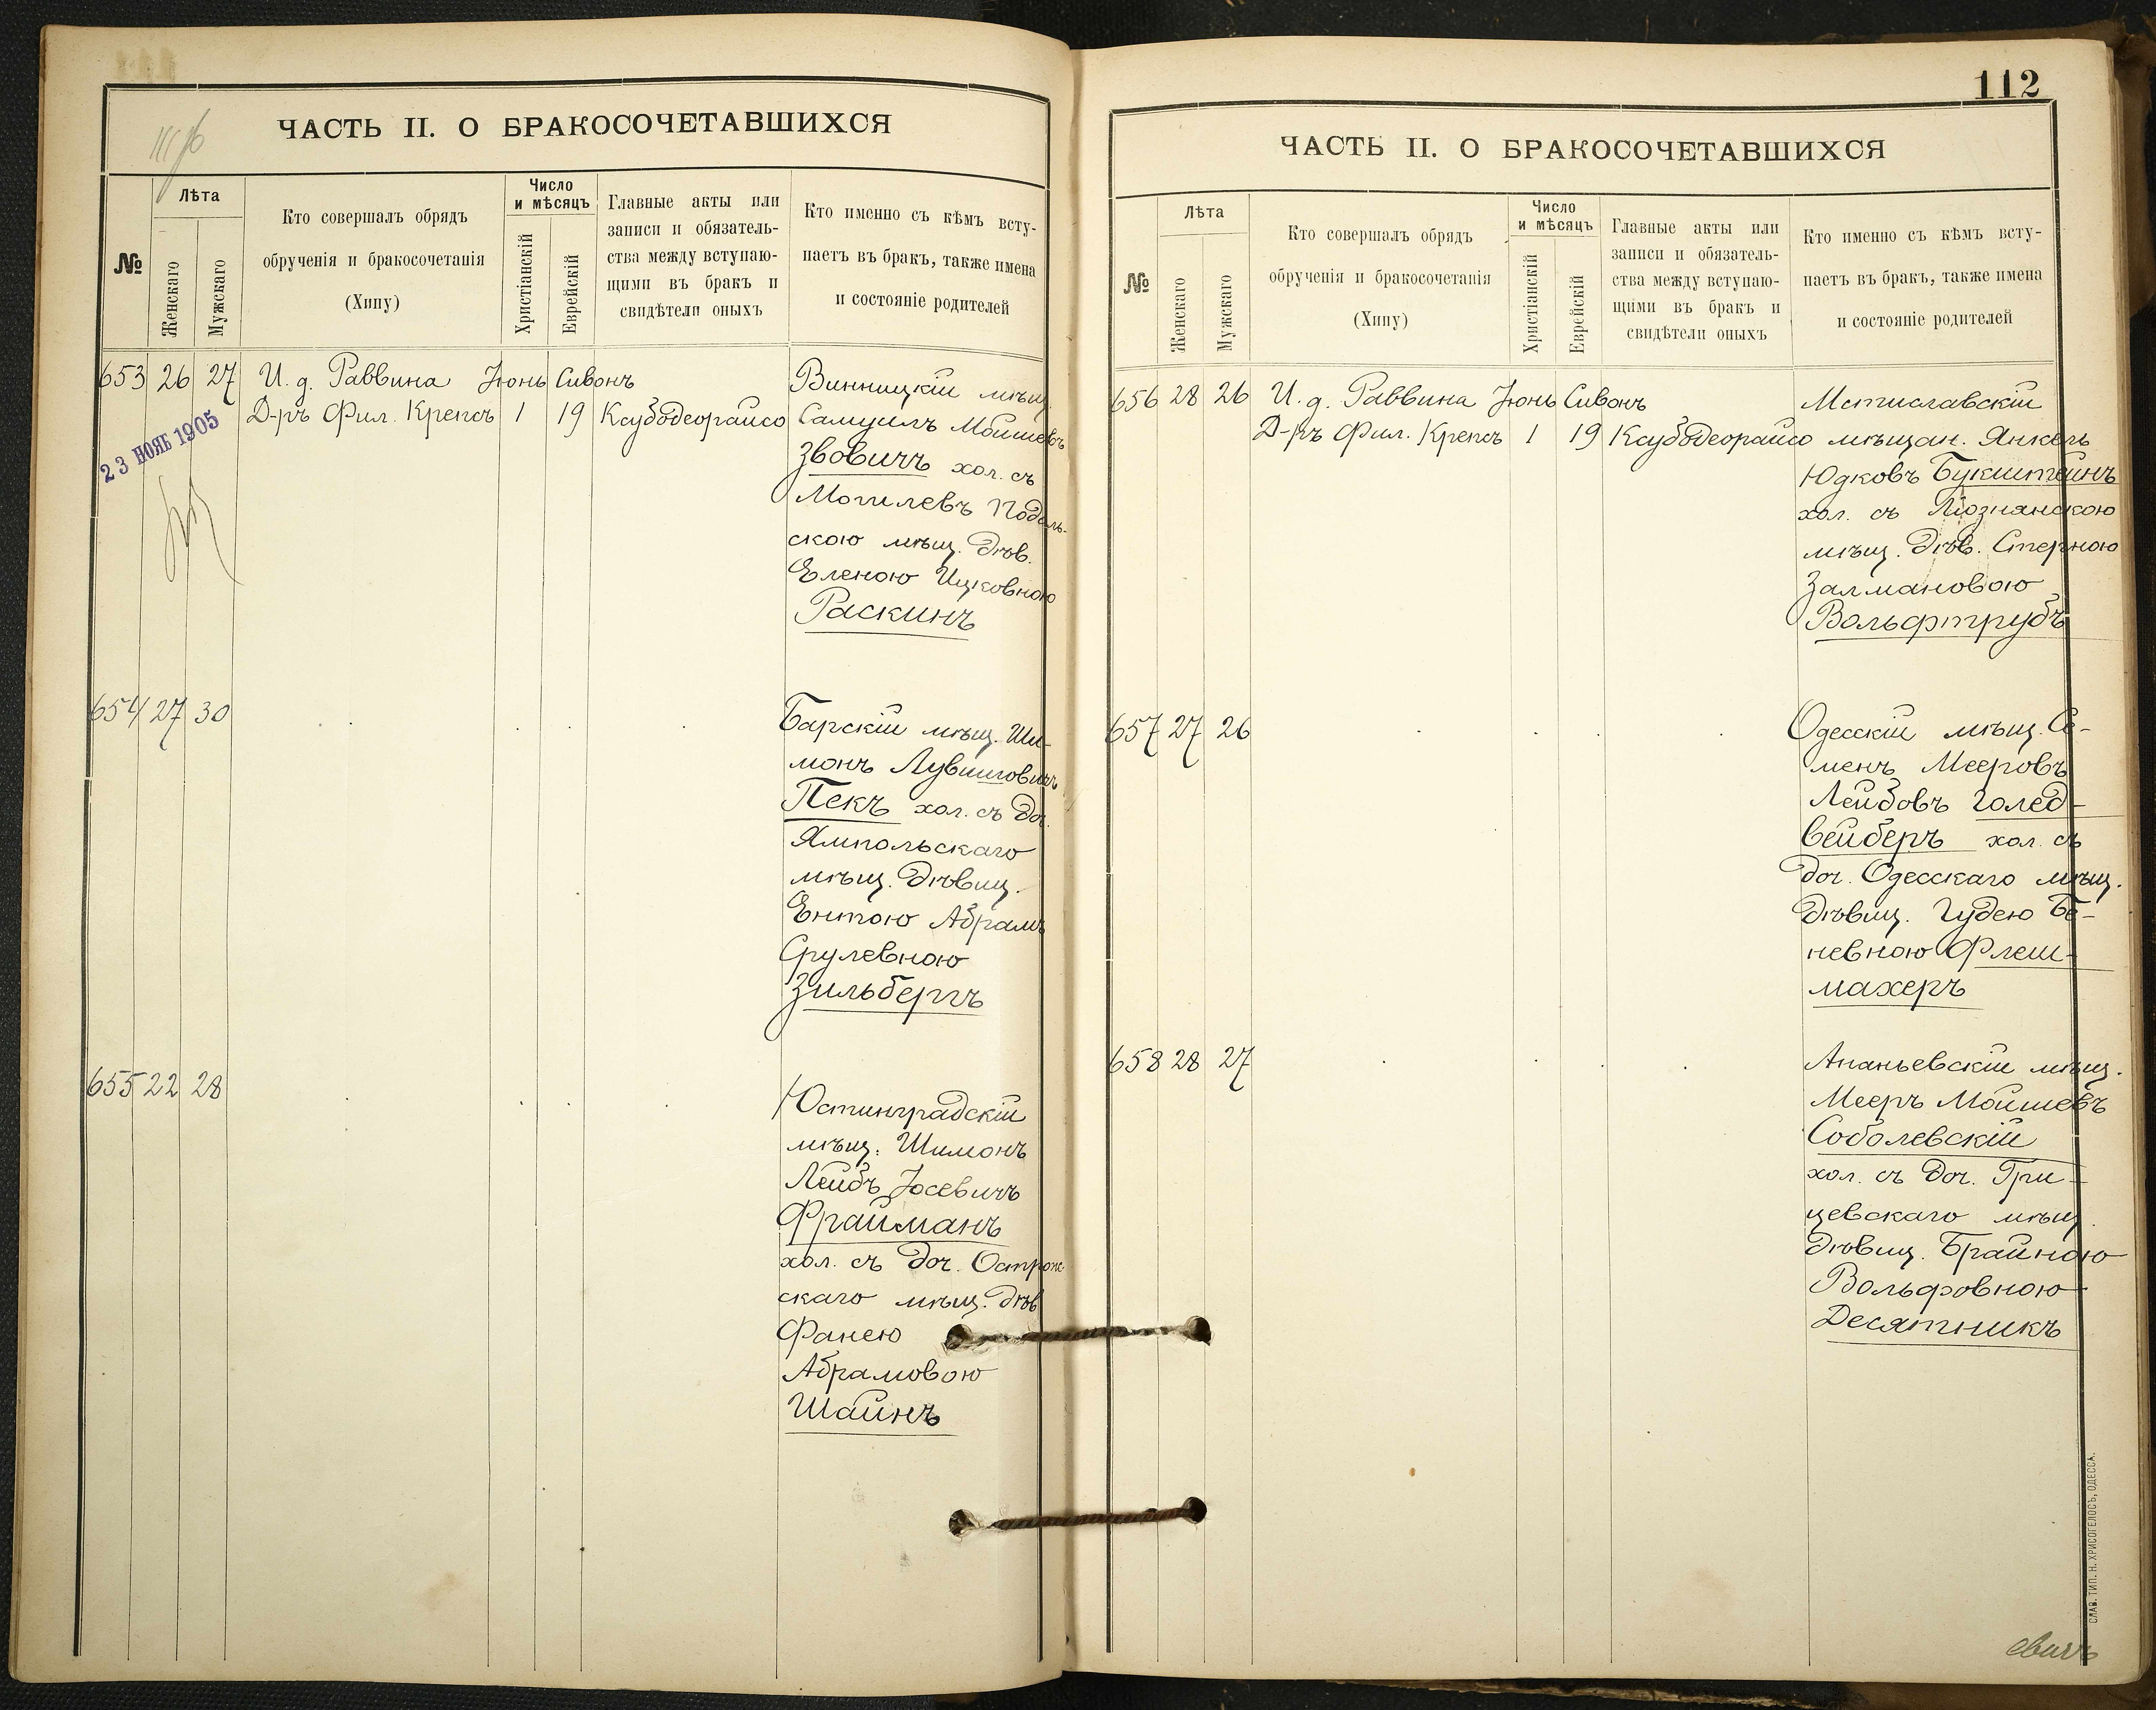 ЧАСТЬ II. О БРАКОСОЧЕТАВШИХСЯ
№
Лѣта
Женскаго
Мужскаго
Кто совершалъ обрядъ
обрученія и бракосочетанія
(Хипу)
Число
и мѣсяцъ
Христіанскій
Еврейскій
Главные акты или
записи и обязатель-
ства между вступаю-
щими въ бракъ и
свидѣтели оныхъ
Кто именно съ кѣмъ всту-
паетъ въ бракъ, также имена
и состояніе родителей
653 26 27 И. д. Раввина Іюнь Сивонъ
Д-ръ Фил. Крепсъ 1 19 Ксубодеорайсо
23 НОЯБ 1905
Винницкій мѣщ.
Самуилъ Мойшевъ
Звовичъ хол. съ
Могилевъ Подоль-
скою мѣщ. дѣв.
Еленою Ицковною
Раскинъ
654 27 30
Барскій мѣщ. Ши-
монъ Лувишовичъ
Пекъ хол. съ доч.
Ямпольскаго
мѣщ. дѣвиц.
Ентою Абрамъ
Срулевною
Зильбергъ
655 22 28
Юстинградскій
мѣщ. Шимонъ
Лейбъ Іосевичъ
Фрайманъ
хол. съ доч. Острож-
скаго мѣщ. дѣв
Фанею
Абрамовою
Шайнъ
112
ЧАСТЬ II. О БРАКОСОЧЕТАВШИХСЯ
№
Лѣта
Женскаго
Мужскаго
Кто совершалъ обрядъ
обрученія и бракосочетанія
(Хипу)
Число
и мѣсяцъ
Христіанскій
Еврейскій
Главные акты или
записи и обязатель-
ства между вступаю-
щими въ бракъ и
свидѣтели оныхъ
Кто именно съ кѣмъ всту-
паетъ въ бракъ, также имена
и состояніе родителей
656 28 26 И. д. Раввина Іюнь Сивонъ
Д-ръ Фил. Крепсъ 1 19 Ксубодеорайсо
Мстиславскій
мѣщан. Янкель
Юдковъ Букштейнъ
хол. съ Ліознянскою
мѣщ. дѣв. Стерною
Залмановою
Вольфтрубъ
657 27 26
Одесскій мѣщ. Се-
менъ Мееровъ
Лейбовъ Голед-
вейберъ хол. съ
доч. Одесскаго мѣщ.
дѣвиц. Гудею Бе-
невною Флеш-
махеръ
658 28 27
Ананьевскій мѣщ.
Мееръ Мойшевъ
Соболевскій
хол. съ доч. Гри-
цевскаго мѣщ.
дѣвиц. Брайною
Вольфовною
Десятникъ
СЛАВ. ТИП. Н. ХРИСОГЕЛОСЪ, ОДЕССА.
евичъ